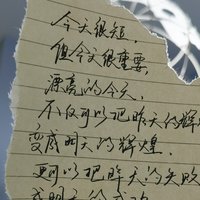 今天很短，
但今天很重要，
漂亮的今天，
不仅可以把昨天的辉
变成明天的辉煌，
更可以把昨天的失败
成明天的成功